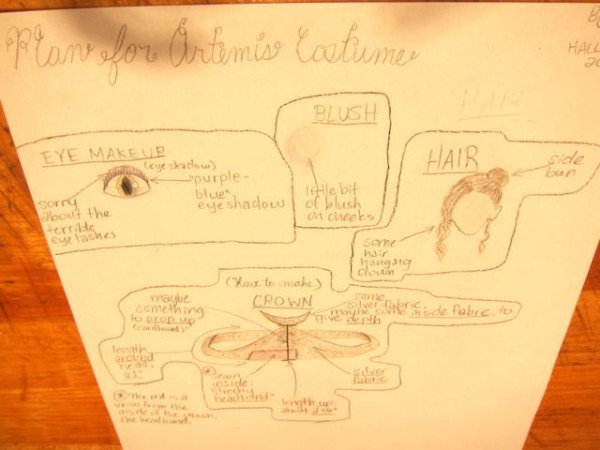 Plan for Artemis Costume
HALL
BLUSH
little bit
of blush
on cheeks
EYE MAKEUP
(eye shadow)
"purple-
blue"
eyeshadow
sorry
about the
terrible
eyelashes
HAIR
HAIR
side
bun
some
hair
hanging
down
(Have to make)
CROWN
maybe
something
to prop up
(cardboard)
some
silver fabric.
maybe some inside fabric. to
give depth
length
around
head:
21"
own
inside:
stretchy
headband
length up:
about
silver
fabric
The red is a
view from the
inside of the crown,
the headband.